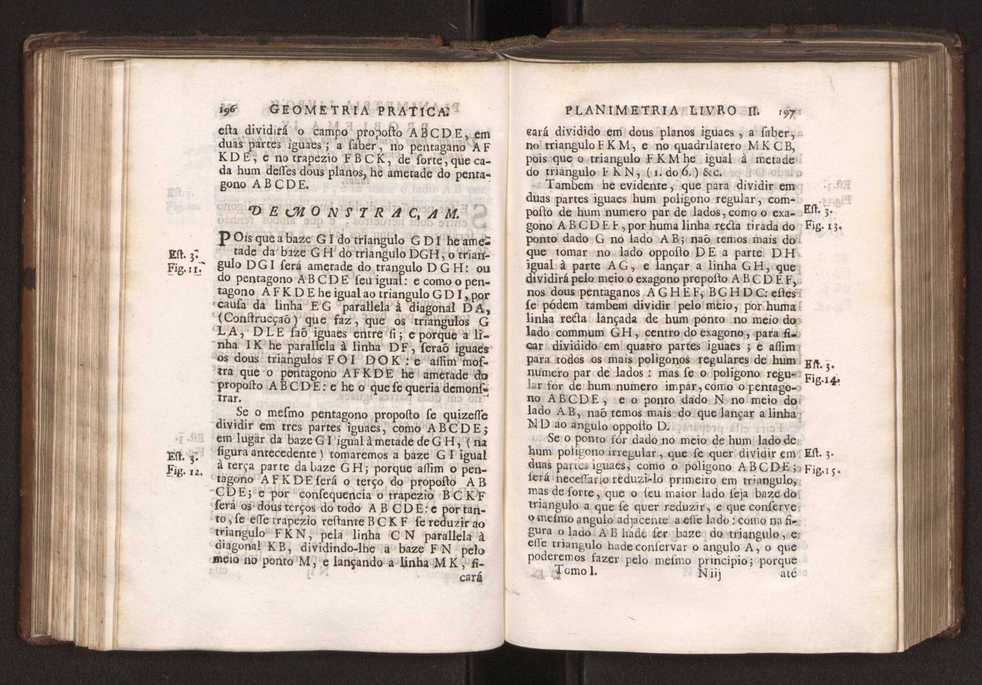 196 GEOMETRIA PRATICA.
eſta dividirá o campo propoſto ABCDE, em
duas partes iguaes; a ſaber, no pentagano AF
KDE, e no trapezio FBCK, de ſorte, que ca-
da hum deſſes dous planos, he ametade do penta-
gono ABCDE.
DEMONSTRAC,AM.
POis que a baze GI do triangulo GDI he ame-
tade da baze GH do triangulo DGH, o trian-
Eſt. 3.
gulo DGI ſerá ametade do trangulo DGH: ou
Fig. 11.
do pentagono ABCDE ſeu igual: e como o pen-
tagono AFKDE he igual ao triangulo GDI, por
cauſa da linha EG parallela à diagonal DA,
(Conſtrucçaõ) que faz, que os triangulos G
LA, DLE ſaõ iguaes entre ſi; e porque a li-
nha IK he parallela à linha DF, ſeraõ iguaes
os dous triangulos FOI DOK: e aſſim moſ-
tra que o pentagono AFKDE he ametade do
propoſto ABCDE: e he o que ſe queria demonſ-
trar.
Se o meſmo pentagono propoſto ſe quizeſſe
dividir em tres partes iguaes, como ABCDE;
em lugar da baze GI igual à metade de GH, (na
Eſt. 3.
figura antecedente) tomaremos a baze GI igual
Fig. 12.
à terça parte da baze GH; porque aſſim o pen-
tagono AFKDE ſerá o terço do propoſto AB
CDE; e por conſequencia o trapezio BCKF
ſerá os dous terços do todo ABCDE: e por tan-
to, ſe eſſe trapezio reſtante BCKF ſe reduzir ao
triangulo FKN, pela linha CN parallela à
diagonal KB, dividindo-lhe a baze FN pelo
meio no ponto M, e lançando a linha MK, fi-
cará
PLANIMETRIA LIVRO II. 197
cará dividido em dous planos iguaes, a ſaber,
no triangulo FKM, e no quadrilatero MKCB,
pois que o triangulo FKM he igual à metade
do triangulo FKN, (1. do 6.) &c.
Tambem he evidente, que para dividir em
duas partes iguaes hum poligono regular, com-
poſto de hum numero par de lados, como o exa-
Eſt. 3.
gono ABCDEF, por huma linha recta tirada do
Fig. 13.
ponto dado G no lado AB; naõ temos mais do
que tomar no lado oppoſto DE a parte DH
igual à parte AG, e lançar a linha GH, que
dividirá pelo meio o exagono propoſto ABCDEF,
nos dous pentaganos AGHEF, BGHDC: eſtes
ſe pódem tambem dividir pelo meio, por huma
linha recta lançada de hum ponto no meio do
lado commum GH, centro do exagono, para fi-
car dividido em quatro partes iguaes; e aſſim
para todos os mais poligonos regulares de hum
Eſt. 3.
numero par de lados: mas ſe o poligono regu-
Fig. 14.
lar for de hum numero impar, como o pentago-
no ABCDE, e o ponto dado N no meio do
lado AB, naõ temos mais do que lançar a linha
ND ao angulo oppoſto D.
Se o ponto for dado no meio de hum lado de
hum poligono irregular, que ſe quer dividir em
Eſt. 3.
duas partes iguaes, como o poligono ABCDE;
Fig. 15.
ſerá neceſſario reduzi-lo primeiro em triangulo,
mas de ſorte, que o ſeu maior lado ſeja baze do
triangulo a que ſe quer reduzir, e que conſerve
o meſmo angulo adjacente a eſſe lado: como na fi-
gura o lado AB hade ſer baze do triangulo, e
eſſe triangulo hade conſervar o angulo A, o que
poderemos fazer pelo meſmo principio; porque
Tomo I. N iij até